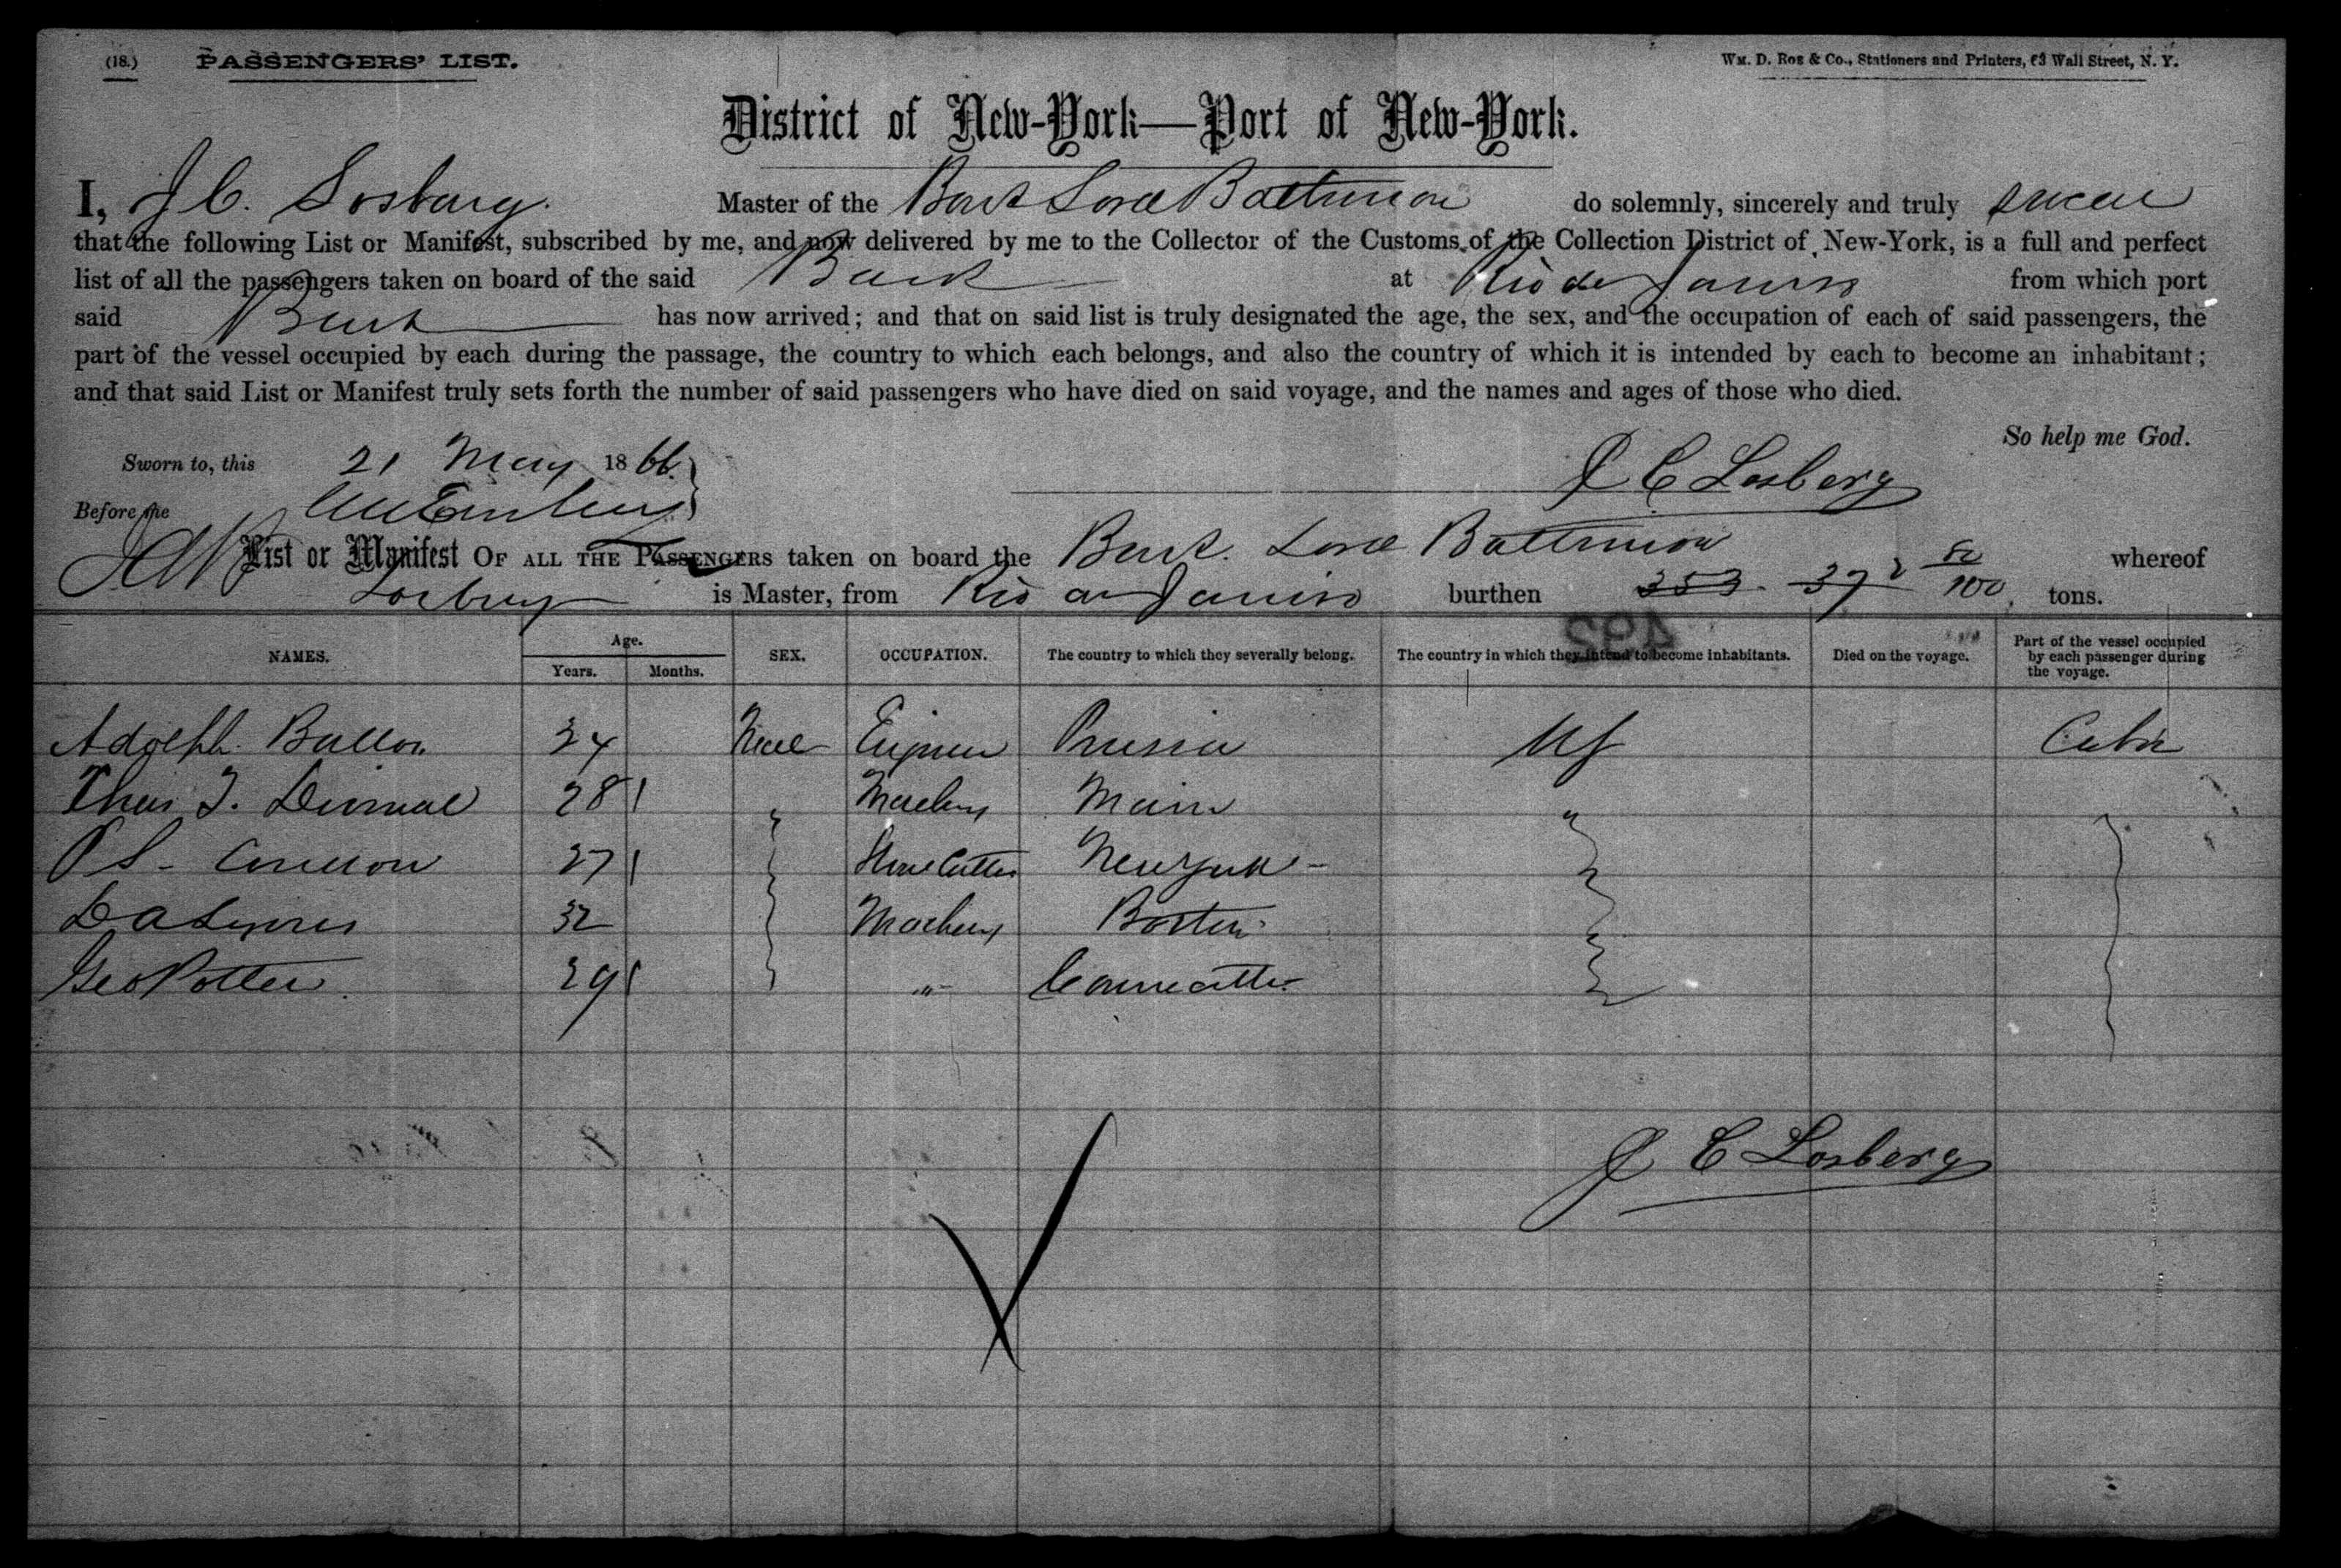 (18.) PASSENGERS' LIST.
WM. D. ROE & CO., Stationers and Printers, 63 Wall Street, N. Y.
District of New-York—Port of New-York.
I, J C. Sosbury. Master of the Bark Lord Baltimore do solemnly, sincerely and truly swear
that the following List or Manifest, subscribed by me, and now delivered by me to the Collector of the Customs of the Collection District of New-York, is a full and perfect
list of all the passengers taken on board of the said Bark at Rio de Janiro from which port
said Bark has now arrived; and that on said list is truly designated the age, the sex, and the occupation of each of said passengers, the
part of the vessel occupied by each during the passage, the country to which each belongs, and also the country of which it is intended by each to become an inhabitant;
and that said List or Manifest truly sets forth the number of said passengers who have died on said voyage, and the names and ages of those who died.
So help me God.
Sworn to, this 21 May 1866
J C Losberg
Before me
List or Manifest OF ALL THE PASSENGERS taken on board the Bark. Lord Baltimore whereof
Losbury is Master, from Rio de Janiro burthen 353 372 80/100 tons.
NAMES. Age. Years. Months. SEX. OCCUPATION. The country to which they severally belong. The country in which they intend to become inhabitants. Died on the voyage. Part of the vessel occupied by each passenger during the voyage.
492
Adolph 34 Male Prussia US Cabin
T. 28 Main "
P S 27 Stone Cutter New York
D A 32 Boston
Geo Potter 29 "
J C Losberg